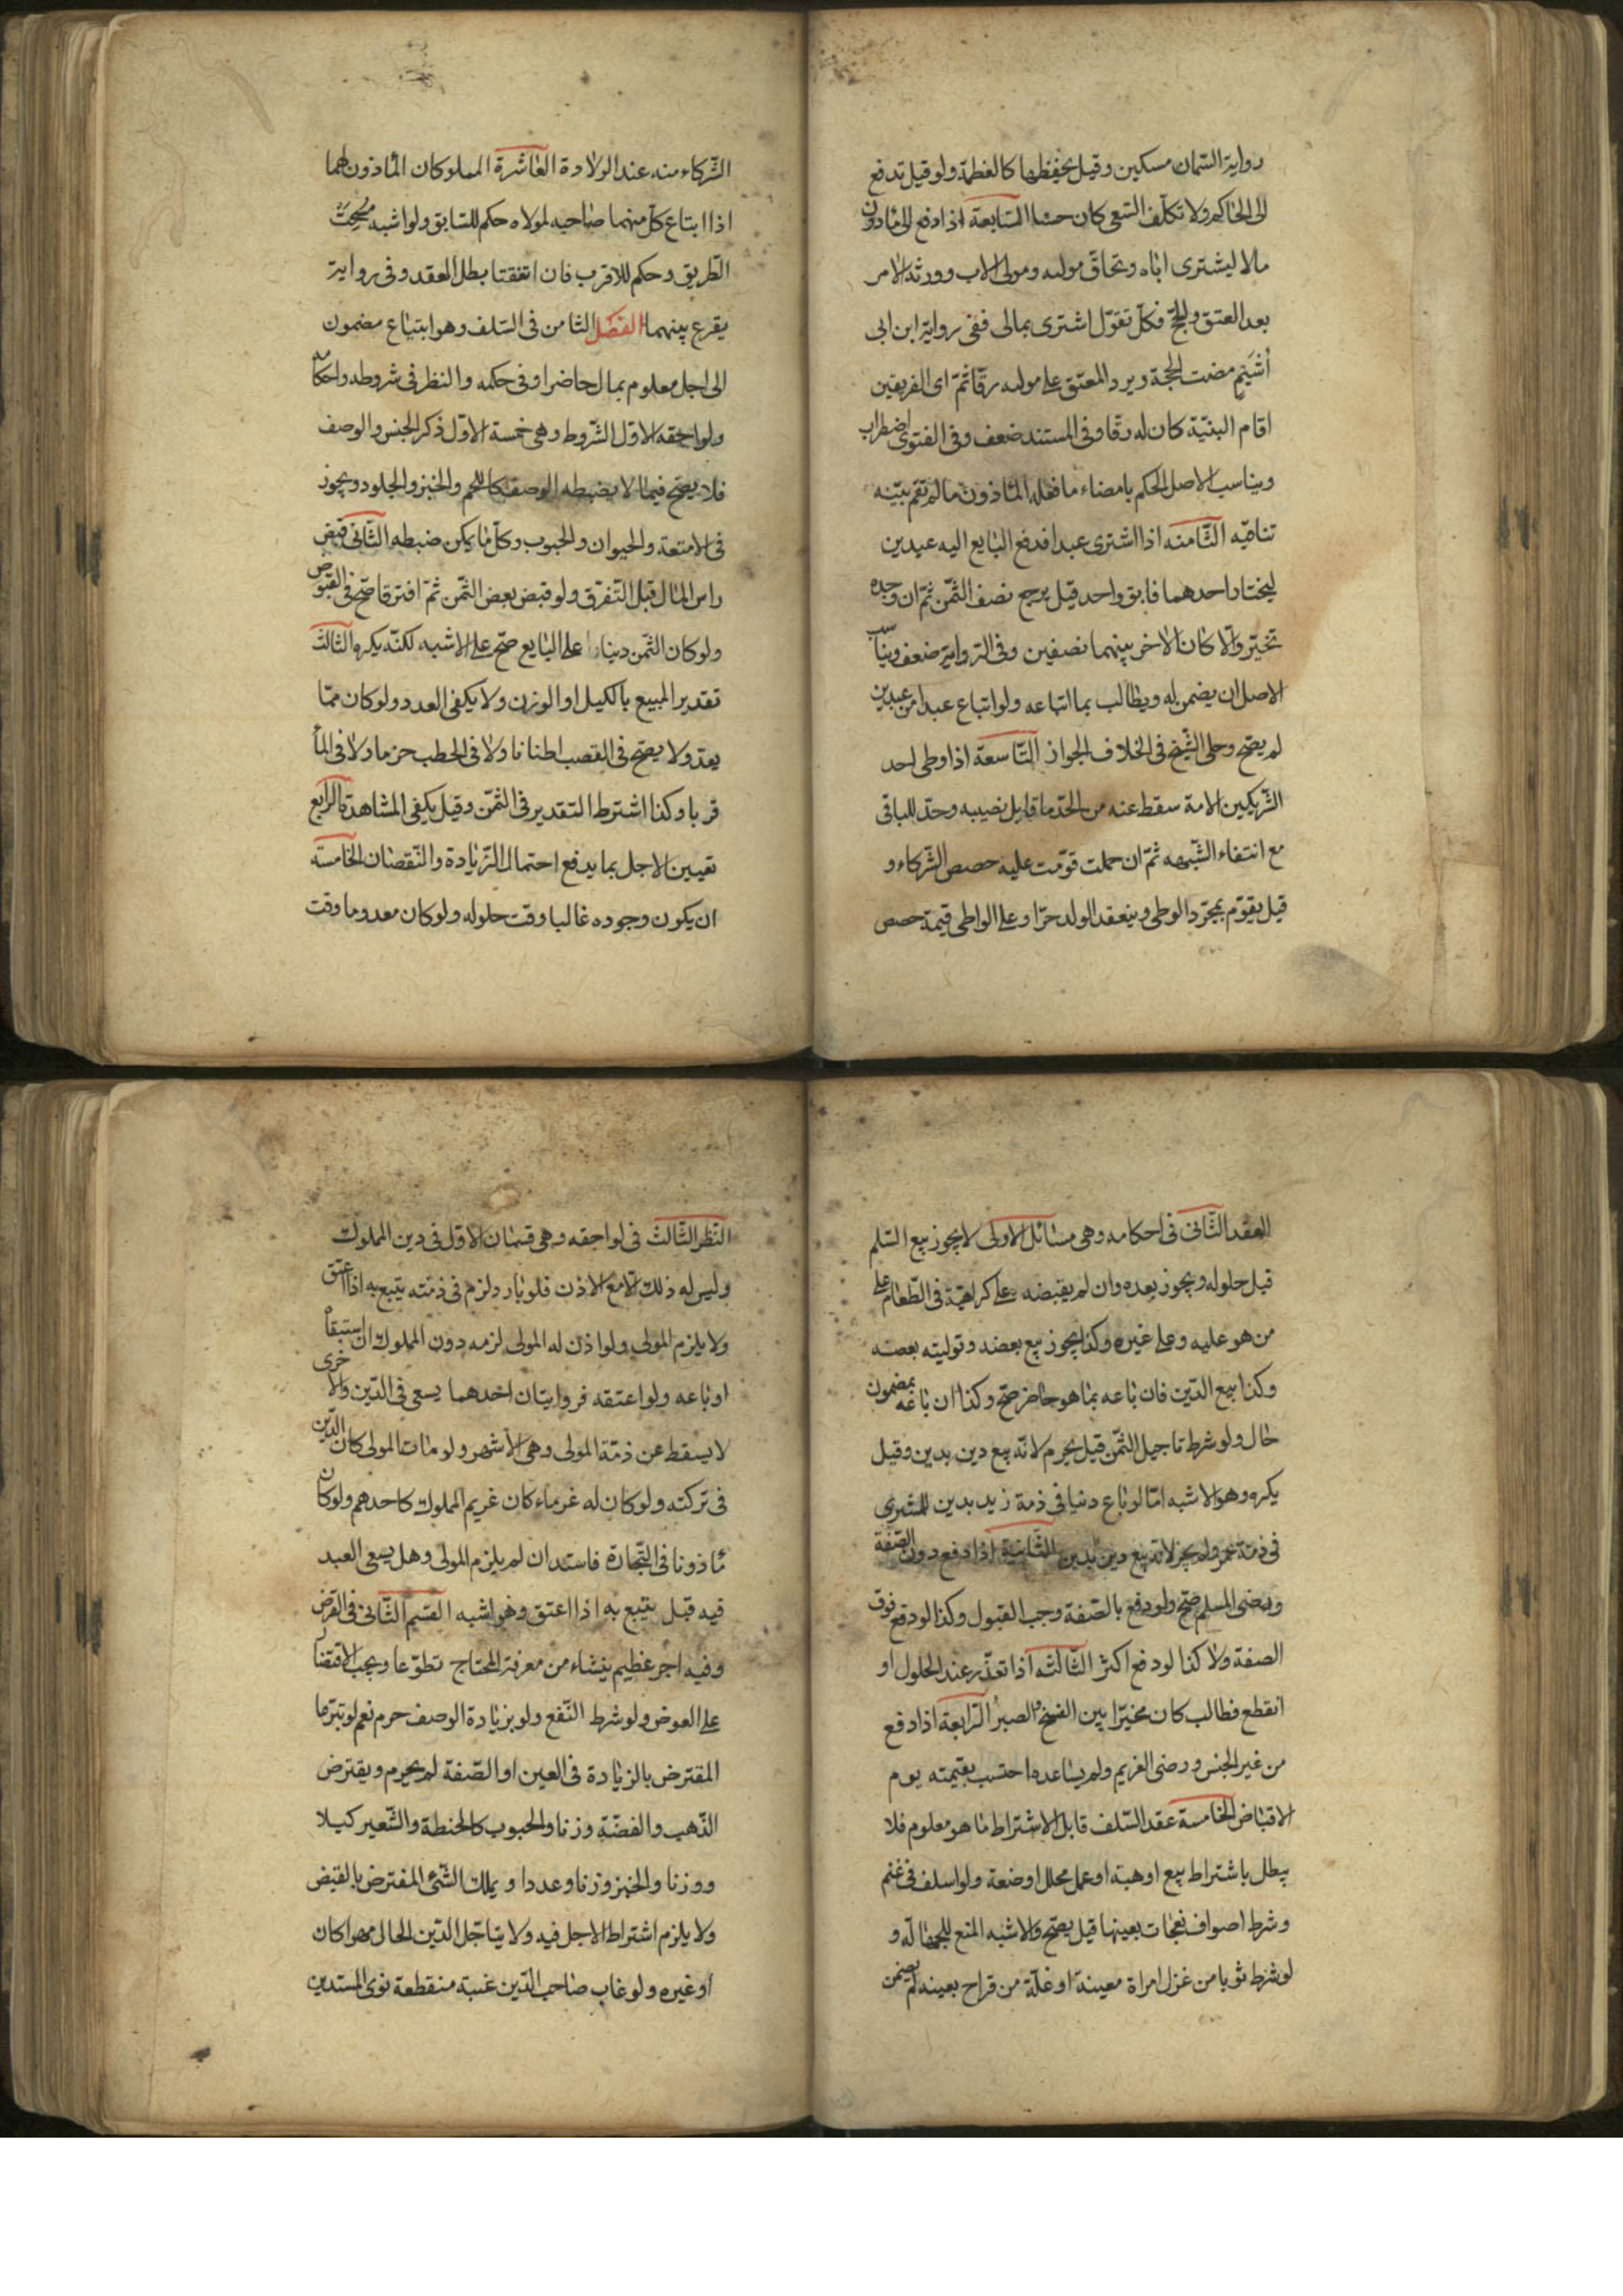 رواية السمان مسكين وقيل يحفظها كاللقطة ولو قيل تدفع
الى الحاكم ولا تكلّف السّعى كان حسنا السّابعة اذا دفع الى مأذون
مالا ليشترى اباه وتحاقّ مولاه ومولى الاب وورثة الامر
بعد العتق والحجّ فكلّ تقوّل اشترى بمالى ففى رواية ابن ابى
أُشَيَم مضت الحجة ويرد المعتق على مولاه رقّا ثمّ اى الفريقين
اقام البنيّة كان له رقّا وفى المستند ضعف وفى الفتوى اضطراب
ويناسب الاصل الحكم بامضاء ما فعله المأذون ما لم تقم بيّنه
تنافيه الثّامنه اذا اشترى عبدا فدفع البايع اليه عبدين
ليختار احدهما فابق واحد قيل يرجع نصف الثّمن ثمّ ان وجده
تخيّر والّا كان الاخر بينهما نصفين وفى الرّواية ضعف ويناسب
الاصل ان يضمن له ويطالب بما ابتاعه ولو ابتاع عبدا من عبدين
لم يصحّ وحكى الشّيخ فى الخلاف الجواز التّاسعة اذا وطى احد
الشّريكين الامة سقط عنه من الحدّ ما قابل نصيبه وحدّ للباقى
مع انتفاء الشّبهه ثمّ ان حملت قوّمت عليه حصص الشّركاء و
قيل يقوّم بمجرّد الوطى وينعقد الولد حرّا وعلى الواطى قيمة حصص
الشّركاء منه عند الولادة العاشرة المملوكان المأذون لهما
اذا ابتاع كلّ منهما صاحبه لمولاه حكم للسّابق ولو اشبه مسحت
الطّريق وحكم للاقرب فان اتفقتا بطل العقد وفى رواية
يقرع بينهما الفصل الثّامن فى السّلف وهو ابتياع مضمون
الى اجل معلوم بمال حاضر او فى حكمه والنظر فى شروطه واحكامه
ولواحقه الاوّل الشّروط وهى خمسة الاوّل ذكر الجنس والوصف
فلا يصحّ فيما لا يضبطه الوصف كاللحم والخبز والجلود ويجوز
فى الامتعة والحيوان والحبوب وكلّ ما يمكن ضبطه الثّانى قبض
راس المال قبل التّفرّق ولو قبض بعض الثّمن ثمّ افترقا صحّ فى القبوض
ولو كان الثّمن دينا على البايع صحّ على الاشبه لكنّه يكره الثّالث
تقدير المبيع بالكيل او الوزن ولا يكفى العدد ولو كان ممّا
يعدّ ولا يصحّ فى القصب اطنانا ولا فى الحطب حزما ولا فى الماء
قربا وكذا اشترط التقدير فى الثمّن وقيل يكفى المشاهدة الرّابع
تعيين الاجل بما يدفع احتمال الزّيادة والنّقصان الخامسة
ان يكون وجوده غالبا وقت حلوله ولو كان معدوما وقت
العقد الثّانى فى احكامه وهى مسائل الاولى لا يجوز بيع السّلم
قبل حلوله ويجوز بعده وان لم يقبضه على كراهيّة فى الطّعام على
من هو عليه وعلى غيره وكذا يجوز بيع بعضه وتوليته بعضه
وكذا بيع الدّين فان باعه بما هو حاضر صحّ وكذا ان باعه بمضمون
حال ولو شرط تاجيل الثّمن قيل يحرم لانّه بيع دين بدين وقيل
يكره وهو الاشبه امّا لو باع دينا فى ذمة زيد بدين للمشترى
فى ذمة عمرو لم يجز لانّه بيع دين بدين الثّانية اذا دفع دون الصّفة
ورضى المسلم صحّ ولو دفع بالصّفة وجب القبول وكذا لو دفع فوق
الصفة ولا كذا لو دفع اكثر الثّالثه اذا تعذّر عند الحلول او
انقطع فطالب كان مخيّرا بين الفسخ والصبر الرّابعة اذا دفع
من غير الجنس ورضى الغريم ولم يساعده احتسب بقيمته يوم
الاقباض الخامسة عقد السّلف قابل الاشتراط ما هو معلوم فلا
يبطل باشتراط بيع او هبة او عمل محلل او صنعة ولو اسلف فى غنم
وشرط اصواف نعجات بعينها قيل يصحّ والاشبه المنع للجهالة و
لو شرط ثوبا من غزل امراة معينة او غلّة من قراح بعينه لم يضمن
النّظر الثّالث فى لواحقه وهى قسمان الاوّل فى دين المملوك
وليس له ذلك الّا مع الاذن فلو بادر لزم فى ذمّته يتبع به اذا اعتق
ولا يلزم المولى ولو اذن له المولى لزمه دون المملوك ان استبقاه
او باعه ولو اعتقه فروايتان احدهما يسعى فى الدّين والاخرى
لا يسقط عن ذمّة المولى وهى الاشهر ولو مات المولى كان الدّين
فى تركته ولو كان له غرماء كان غريم المملوك كاحدهم ولو كان
مأذونا فى التّجارة فاستدان لم يلزم المولى وهل يسعى العبد
فيه قيل يتبع به اذا اعتق وهو اشبه القسم الثّانى فى القرض
وفيه اجر عظيم ينشاء من معرفة المحتاج تطوّعا ويجب الاقتضا
على العوض ولو شرط النّفع ولو بزيادة الوصف حرم نعم لو تبرّما
المقترض بالزيادة فى العين او الصّفة لم يحرم ويقترض
الذّهب والفضّة وزنا والحبوب كالحنطة والشّعير كيلا
ووزنا والخبز وزنا وعددا ويملك الشّىء المقترض بالقبض
ولا يلزم اشتراط الاجل فيه ولا يتاجّل الدّين الحال مهرا كان
او غيره ولو غاب صاحب الدّين غيبة منقطعة نوى المستدين